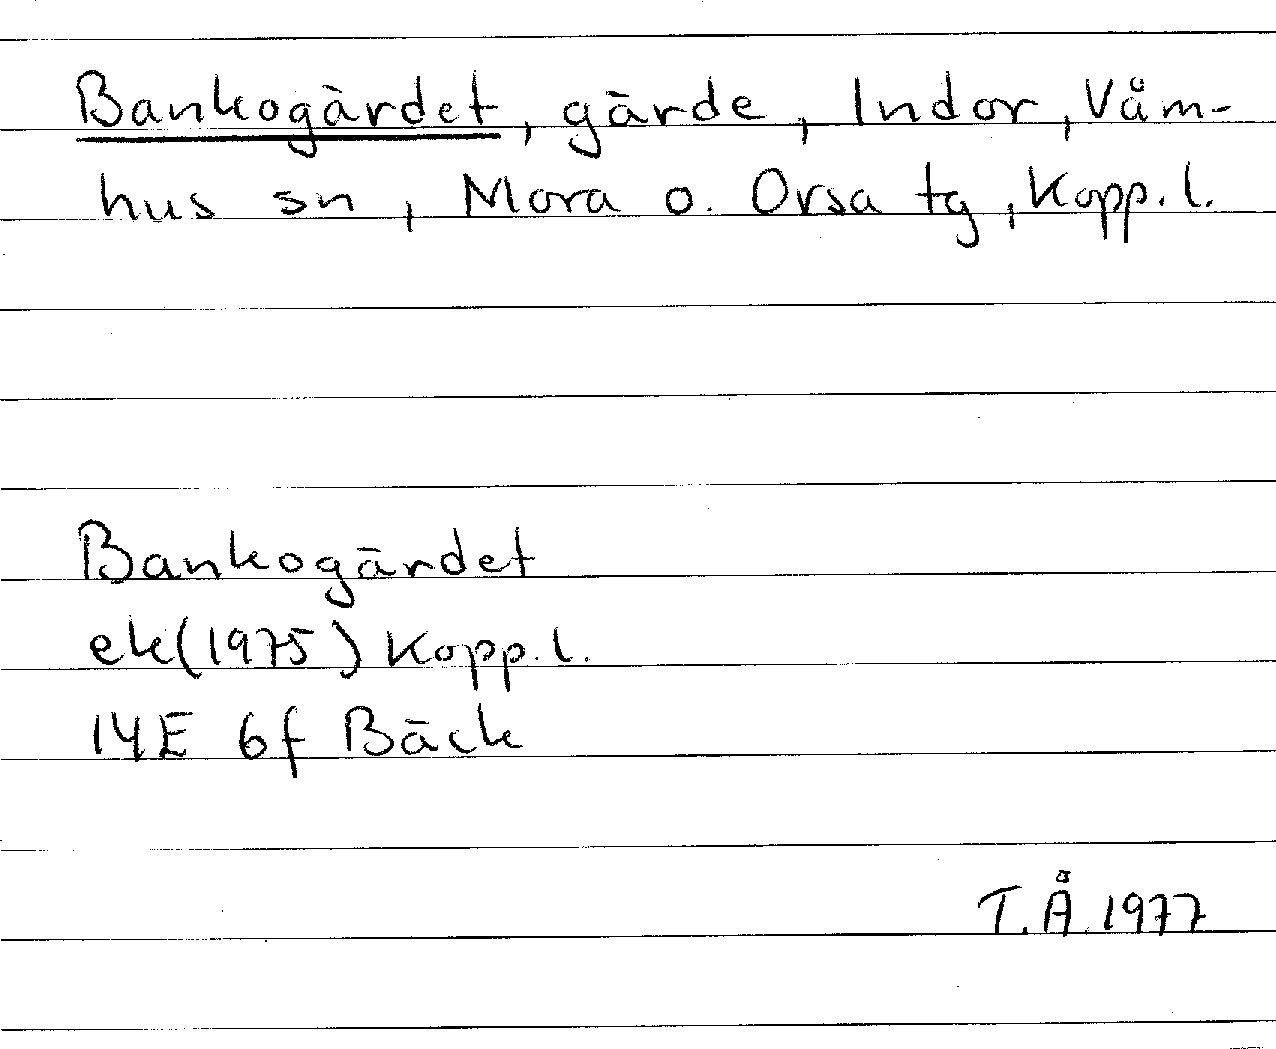 Bankogärdet, gärde, Indor, Våm-
hus sn, Mora o. Orsa tg, Kopp. l.
Bankogärdet
ek(1975) Kopp. l.
14E 6f Bäck
T.Å. 1977